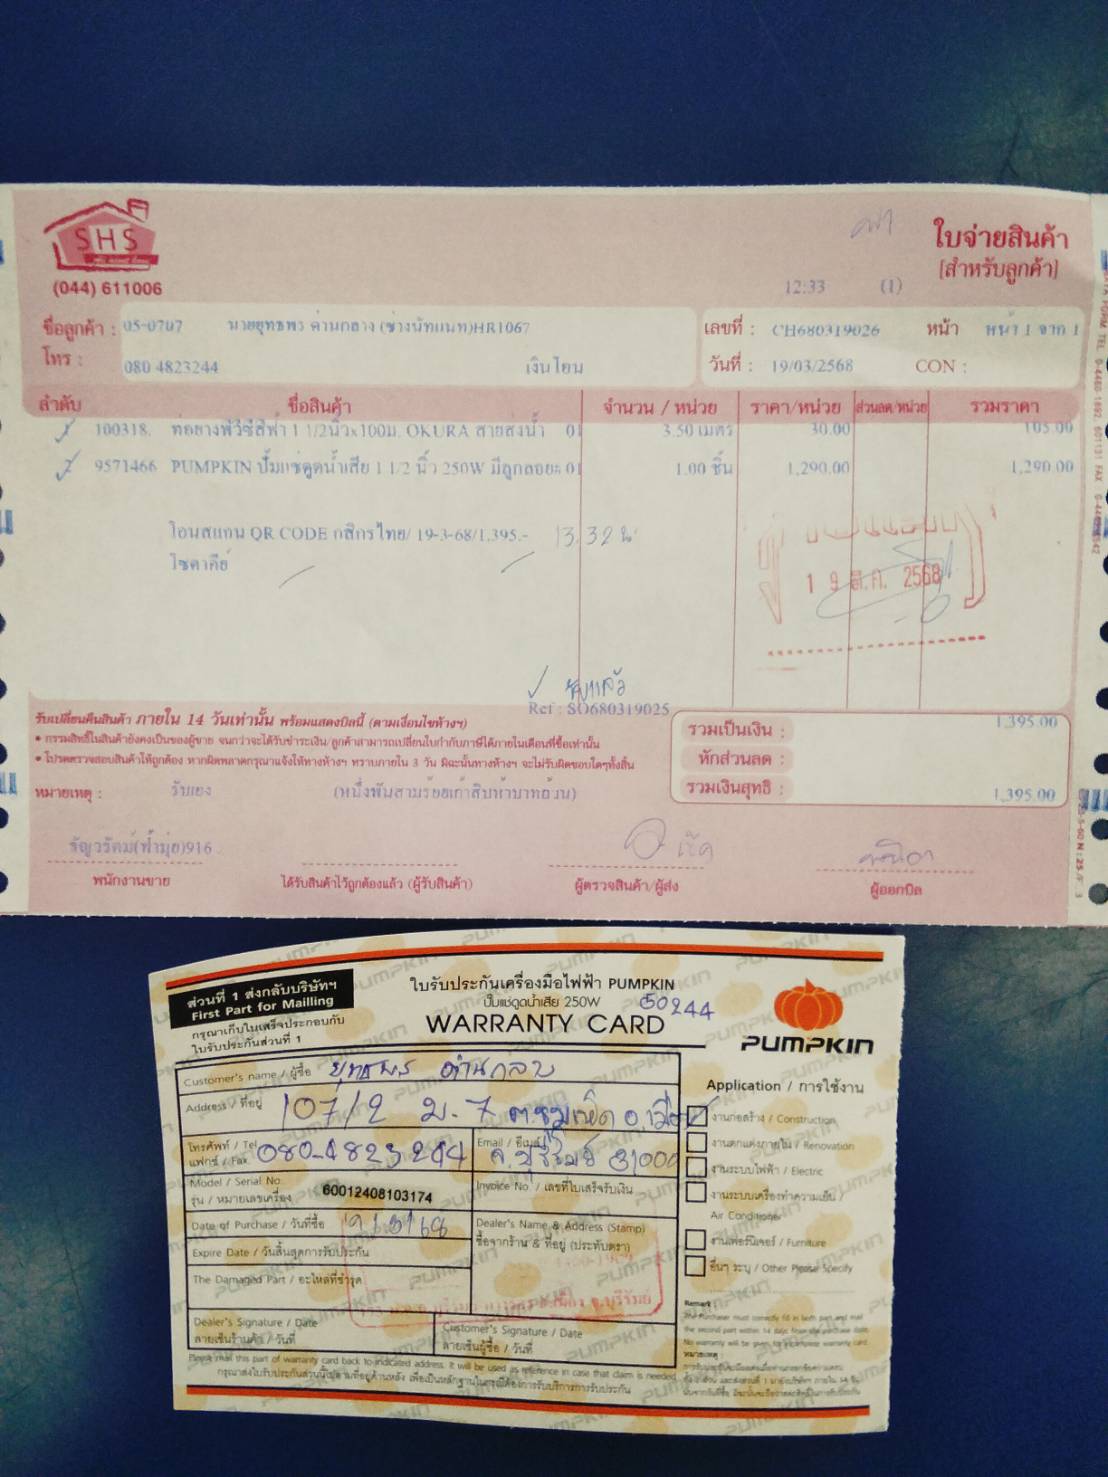 SHS
(044) 611006
ใบจ่ายสินค้า
[สำหรับลูกค้า]
12:33 (1)
ชื่อลูกค้า : 05-0707 นายยุทธพร ด่านกลาง (ช่างนัทแนท)HR1067
โทร : 080 4823244 เงินโอน
เลขที่ : CH680319026 หน้า หน้า 1 จาก 1
วันที่ : 19/03/2568 CON :
ลำดับ ชื่อสินค้า จำนวน / หน่วย ราคา/หน่วย ส่วนลด/หน่วย รวมราคา
1 100318. ท่อยางพีวีซีสีฟ้า 1 1/2นิ้วx100ม. OKURA สายส่งน้ำ 01 3.50 เมตร 30.00 105.00
2 9571466 PUMPKIN ปั๊มแช่ดูดน้ำเสีย 1 1/2 นิ้ว 250W มีลูกลอย 01 1.00 ชิ้น 1,290.00 1,290.00
โอนสแกน QR CODE กสิกรไทย/ 19-3-68/1,395.- 13.32 น
โชคาคีย์
19 มี.ค. 2568
Ref : SO680319025
รับเปลี่ยนคืนสินค้า ภายใน 14 วันเท่านั้น พร้อมแสดงบิลนี้ (ตามเงื่อนไขห้างฯ)
• กรรมสิทธิ์ในสินค้ายังคงเป็นของผู้ขาย จนกว่าจะได้รับชำระเงิน/ลูกค้าสามารถเปลี่ยนใบกำกับภาษีได้ภายในเดือนที่ซื้อเท่านั้น
• โปรดตรวจสอบสินค้าให้ถูกต้อง หากผิดพลาดกรุณาแจ้งให้ทางห้างฯ ทราบภายใน 3 วัน มิฉะนั้นทางห้างฯ จะไม่รับผิดชอบใดๆทั้งสิ้น
รวมเป็นเงิน : 1,395.00
หักส่วนลด :
รวมเงินสุทธิ : 1,395.00
หมายเหตุ : รับเอง (หนึ่งพันสามร้อยเก้าสิบห้าบาทถ้วน)
ธัญวรัตม์(ฟ้ามุ่ย)916
พนักงานขาย ได้รับสินค้าไว้ถูกต้องแล้ว (ผู้รับสินค้า) ผู้ตรวจสินค้า/ผู้ส่ง ผู้ออกบิล
ส่วนที่ 1 ส่งกลับบริษัทฯ
First Part for Mailling
กรุณาเก็บใบเสร็จประกอบกับ
ใบรับประกันส่วนที่ 1
ใบรับประกันเครื่องมือไฟฟ้า PUMPKIN
ปั๊มแช่ดูดน้ำเสีย 250W 50244
WARRANTY CARD
PUMPKIN
Customer's name / ผู้ซื้อ ยุทธพร ด่านกลาง
Address / ที่อยู่ 107/2 ม.7 ต.ชุมเห็ด อ.เมือง
โทรศัพท์ / Tel 080-4823244
แฟกซ์ / Fax
Email / อีเมล์ จ.บุรีรัมย์ 31000
Model / Serial No.
รุ่น / หมายเลขเครื่อง 60012408103174
Invoice No. / เลขที่ใบเสร็จรับเงิน
Date of Purchase / วันที่ซื้อ 19/3/68
Dealer's Name & Address (Stamp)
ซื้อจากร้าน & ที่อยู่ (ประทับตรา)
Expire Date / วันสิ้นสุดการรับประกัน
The Damaged Part / อะไหล่ที่ชำรุด
Dealer's Signature / Date
ลายเซ็นร้านค้า / วันที่
Customer's Signature / Date
ลายเซ็นผู้ซื้อ / วันที่
Please mail this part of warranty card back to indicated address. It will be used as reference in case that claim is needed
Application / การใช้งาน
งานก่อสร้าง / Construction
งานตกแต่งภายใน / Renovation
งานระบบไฟฟ้า / Electric
งานระบบเครื่องทำความเย็น /
Air Conditioner
งานเฟอร์นิเจอร์ / Furniture
อื่นๆ ระบุ / Other Please Specify
Remark :
The Purchaser must correctly fill in both part and mail
the second part within 14 days from the purchase date
No warranty will be given for incomplete warranty card
หมายเหตุ :